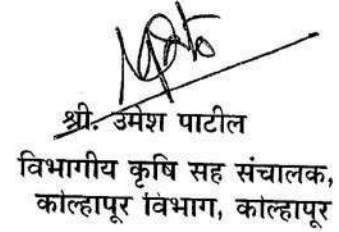 श्री. उमेश पाटील
विभागीय कृषि सह संचालक,
कोल्हापूर विभाग, कोल्हापूर